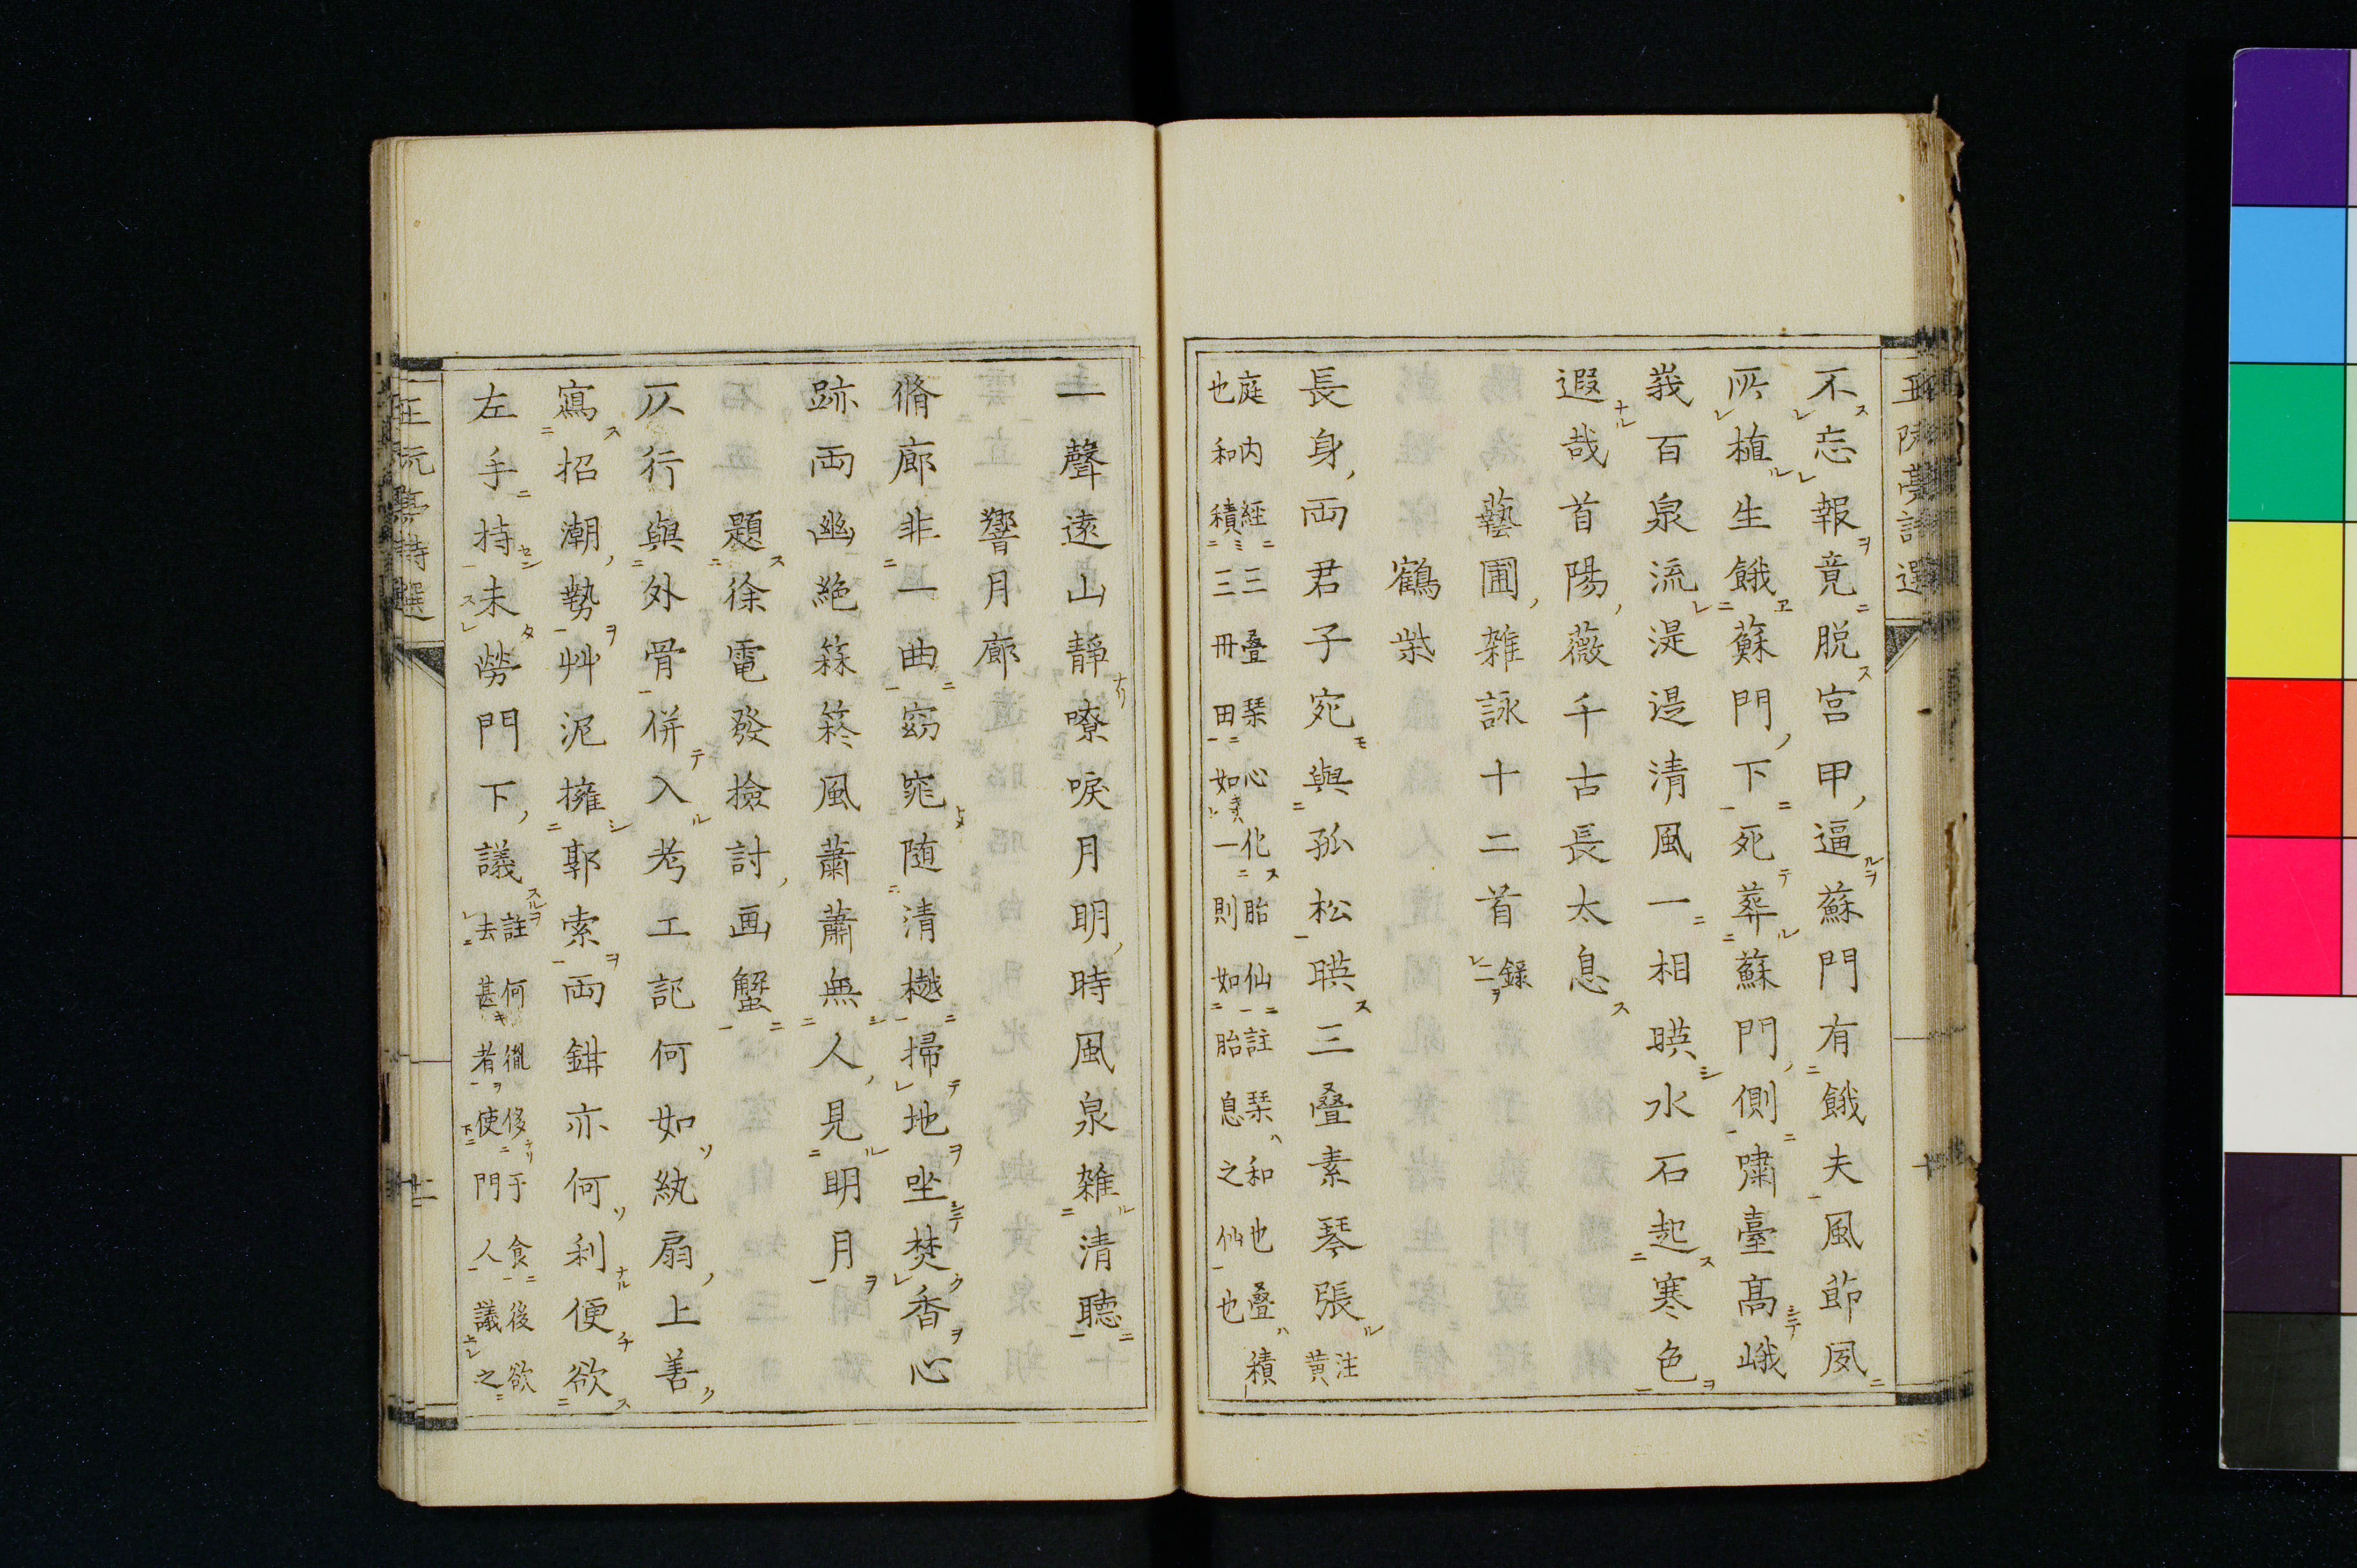 不忘報竟脱宮甲逼蘇門有餓夫風節夙
所植生餓蘇門下死葬蘇門側嘯臺高峨
峩百泉流湜湜清風一相暎水石起寒色
遐哉首陽薇千古長太息
藝圃雑詠十二首録二
鶴柴
長身両君子宛與孤松暎三叠素琴張注黄
庭内経三叠琹心化胎仙註琹和也叠積
也和積三三冊田如一則如胎息之仙也
一聲遠山靜嘹唳月明時風泉雑清聴
響月廊
脩廊非一曲窈窕随清樾掃地坐焚香心
跡両幽絶篠簵風蕭蕭無人見明月
題徐電發撿討画蟹
仄行與外骨併入考工記何如紈扇上善
寫招潮勢艸泥擁郭索両鉗亦何利便欲
左手持未勞門下議註何胤侈于食後欲
去甚者使門人議之
王阮亭詩選
十
王阮亭詩選
十一